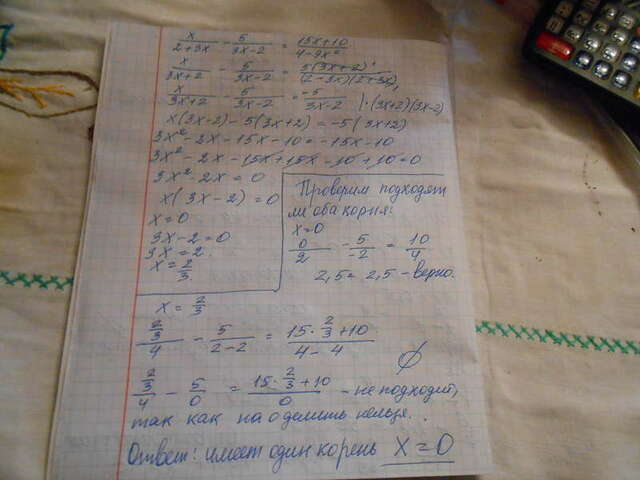 x/(2+3x) - 5/(3x-2) = (15x+10)/(4-9x²)
x/(3x+2) - 5/(3x-2) = 5(3x+2)/((2-3x)(2+3x))
x/(3x+2) - 5/(3x-2) = -5/(3x-2) | ·(3x+2)(3x-2)
x(3x-2) - 5(3x+2) = -5(3x+2)
3x² - 2x - 15x - 10 = -15x - 10
3x² - 2x - 15x + 15x - 10 + 10 = 0
3x² - 2x = 0
x(3x-2) = 0
x = 0
3x - 2 = 0
3x = 2
x = 2/3
Проверим подходят
ли оба корня:
x = 0
0/2 - 5/-2 = 10/4
2,5 = 2,5 - верно.
x = 2/3
(2/3)/4 - 5/(2-2) = (15·2/3+10)/(4-4)
∅
(2/3)/4 - 5/0 = (15·2/3+10)/0 - не подходит,
так как на 0 делить нельзя.
Ответ: имеет один корень x = 0